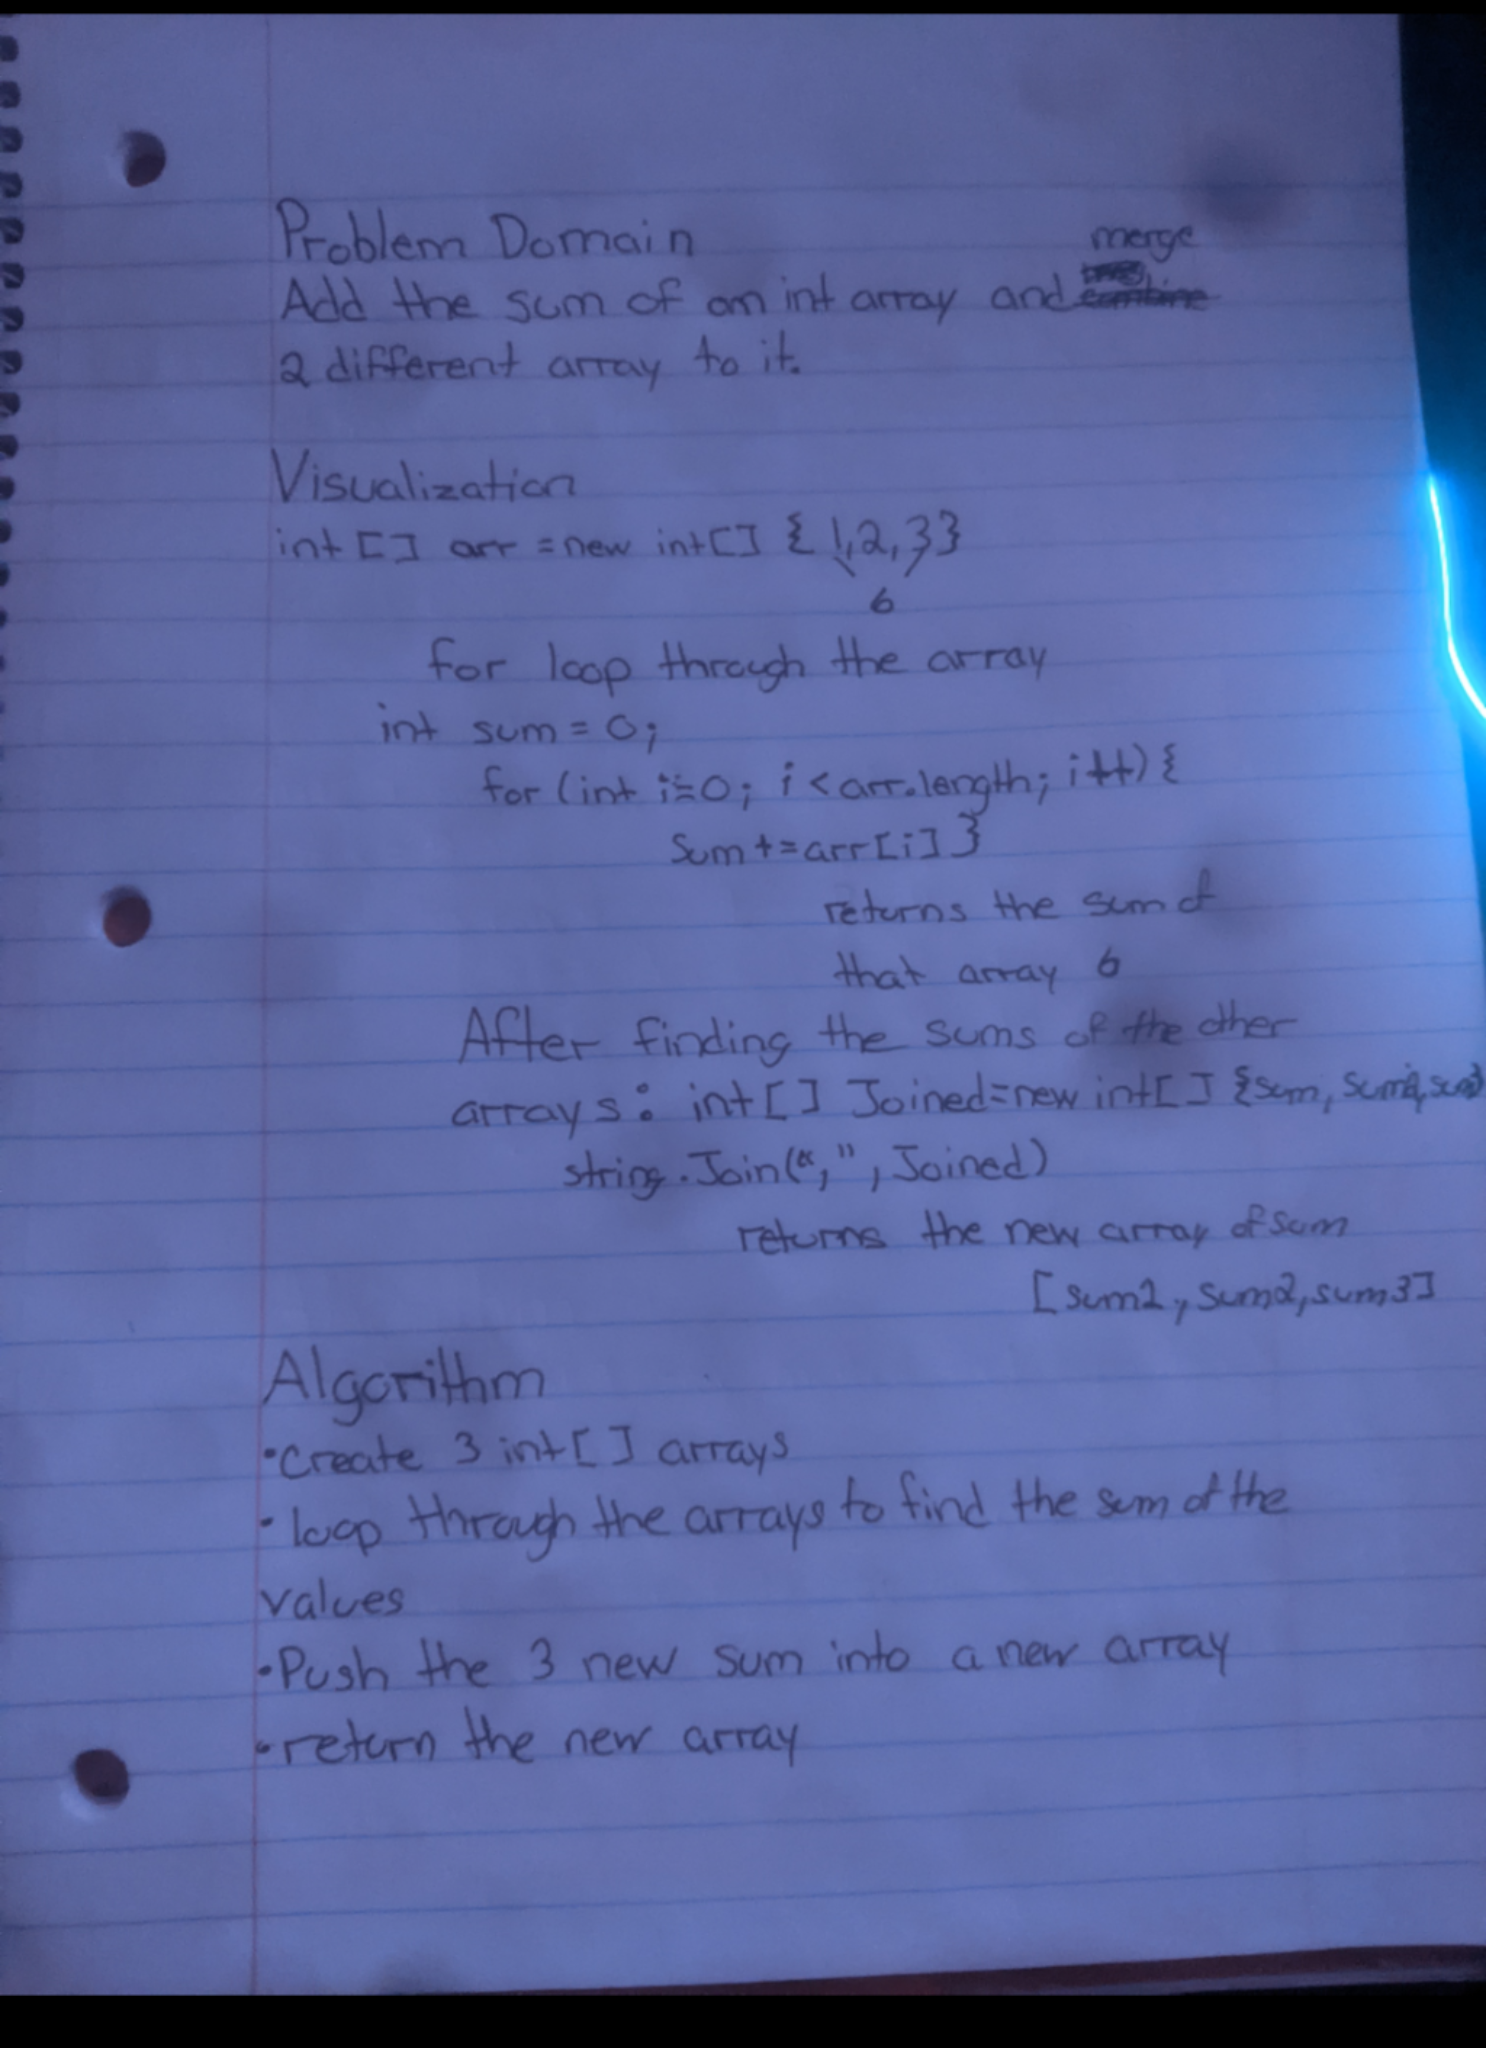 Problem Domain
merge
Add the sum of an int array and
2 different array to it.
Visualization
int [] arr = new int[] { 1,2,3}
6
for loop through the array
int sum = 0;
for (int i=0; i < arr.length; i++) {
Sum += arr[i] }
returns the sum of
that array 6
After finding the sums of the other
arrays: int[] Joined=new int[] {sum, sum2,
string.Join(",", Joined)
returns the new array of sum
[sum1, sum2, sum3]
Algorithm
• Create 3 int[] arrays
• loop through the arrays to find the sum of the
values
• Push the 3 new sum into a new array
• return the new array